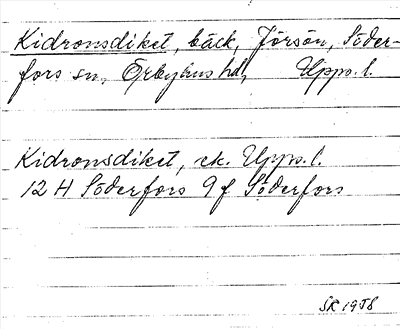 Kidronsdiket, bäck, Jörsön, Söder-
fors sn, Örbyhus hd, Upps. l.
Kidronsdiket, ek. Upps. l.
12 H Söderfors 9 f Söderfors
SK 1958